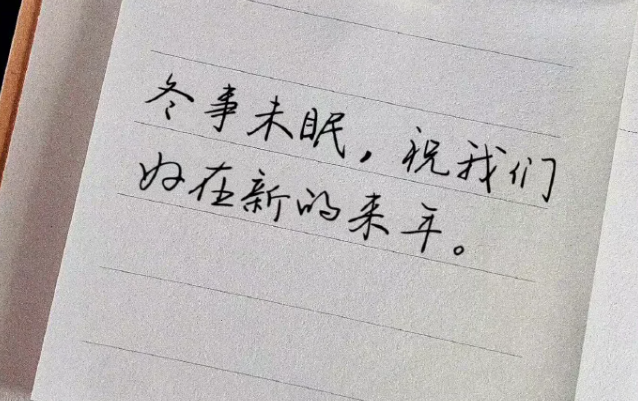 冬事未眠，祝我们
好在新的来年。